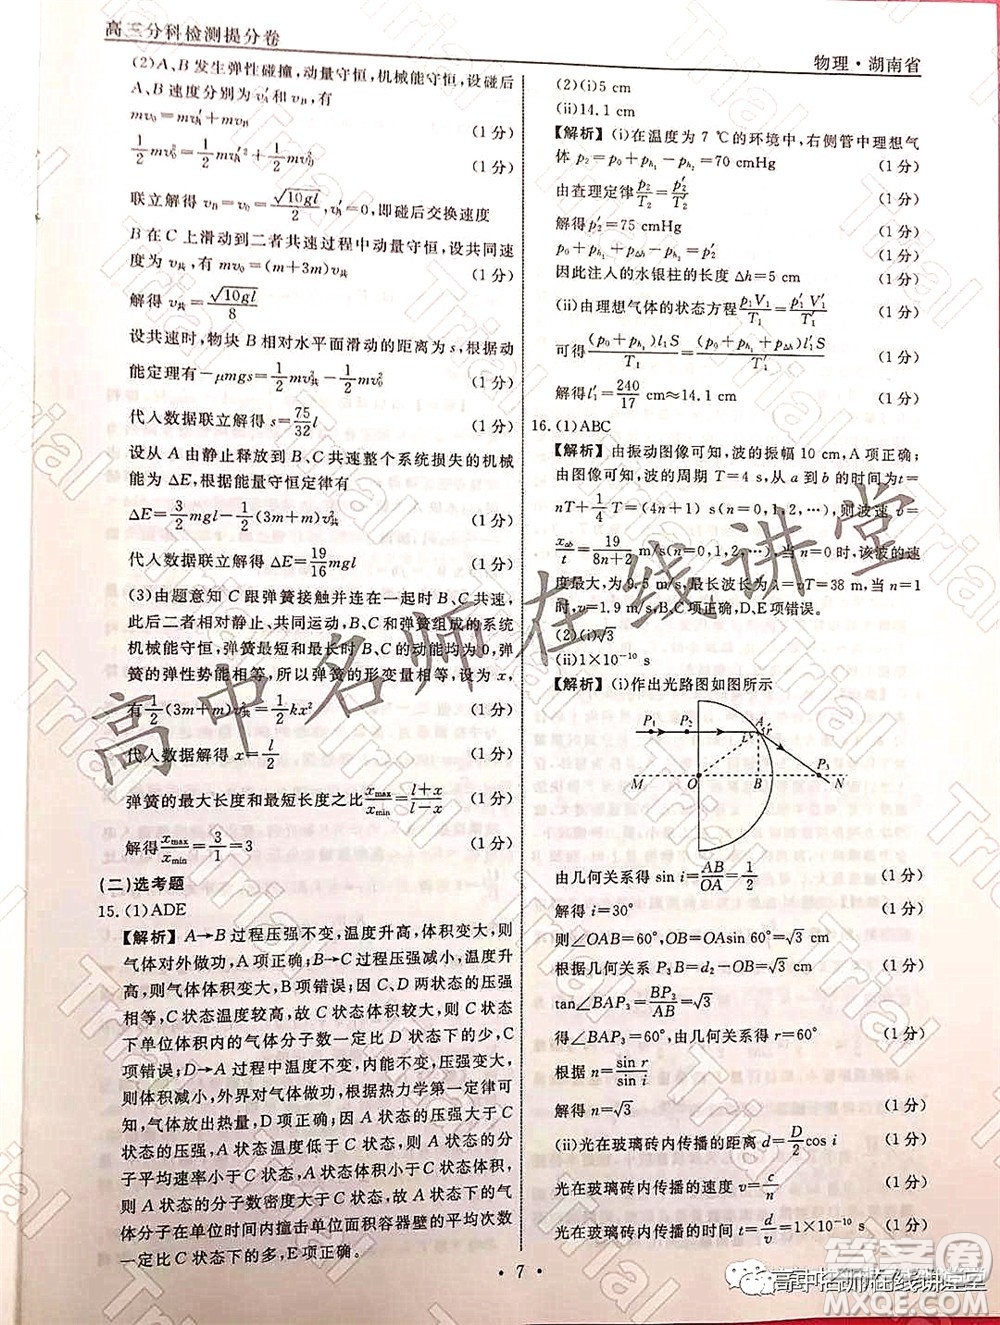 高三分科检测提分卷
物理·湖南省
(2)A、B发生弹性碰撞,动量守恒,机械能守恒,设碰后
A、B速度分别为v′A和vB,有
mv0=mv′A+mvB (1分)
1/2mv0²=1/2mv′A²+1/2mvB² (1分)
联立解得vB=√10gl/2,v′A=0,即碰后交换速度
B在C上滑动到二者共速过程中动量守恒,设共同速
度为v共,有mv0=(m+3m)v共 (1分)
解得v共=√10gl/8
设共速时,物块B相对水平面滑动的距离为s,根据动
能定理有-μmgs=1/2mv共²-1/2mv0² (1分)
代入数据联立解得s=75/32l (1分)
设从A由静止释放到B、C共速整个系统损失的机械
能为ΔE,根据能量守恒定律有
ΔE=3/2mgl-1/2(3m+m)v共² (1分)
代入数据联立解得ΔE=19/16mgl (1分)
(3)由题意知C跟弹簧接触并连在一起时B、C共速,
此后二者相对静止、共同运动,B、C和弹簧组成的系统
机械能守恒,弹簧最短和最长时B、C的动能均为0,弹
簧的弹性势能相等,所以形变量相等,设为x,
有1/2(3m+m)v共²=1/2kx² (1分)
代入数据解得x=l/2
弹簧的最大长度和最短长度之比xmax/xmin=l+x/l-x (1分)
解得xmax/xmin=3/1=3 (1分)
(二)选考题
15.(1)ADE
【解析】A→B过程压强不变,温度升高,体积变大,
气体对外做功,A项正确;B→C过程压强减小,温度升
高,则气体体积变大,故C状态下的气体体积一定比
D状态下的气体体积大,故C状态
下单位体积内的气体分子数一定比D状态下的少,
C项错误;
D→A过程温度不变,压强变大,
体积变小,外界对气体做功,根据热力学第一定律可
知,气体放出热量,D项正确;A状态的压强大于C状
态,且A状态的温度低于C状态,则A状态的分子平
均速率小于C状态,A状态的体积也小于C状态,
则A状态的分子数密度大于C状态,可知A状态的气
体分子在单位时间内撞击单位面积容器壁的平均次数
一定比C状态下的多,E项正确。
(2)(i)5 cm
(ii)14.1 cm
【解析】(i)在温度为7 ℃的环境中,右侧管中理想气
体p2=p0+ph1-ph2=70 cmHg (1分)
由查理定律p2/T2=p′2/T′2 (1分)
解得p′2=75 cmHg (1分)
p0+ph1+pΔh=ph2+p′2 (1分)
因此注入的水银柱的长度Δh=5 cm (1分)
(ii)由理想气体的状态方程p1V1/T1=p′1V′1/T′1 (1分)
可得(p0+ph1)l1S/T1=(p0+ph1+pΔh)l′1S/T′1 (1分)
解得l′1=240/17 cm≈14.1 cm (1分)
16.(1)ABC
【解析】由振动图像可知,波的振幅10 cm,A项正确;
由图像可知,波的周期T=4 s,从a到b的时间为t=
nT+1/4T=(4n+1)s(n=0,1,2,…),则波速v=
xab/t=19/8n+2 m/s(n=0,1,2,…),当n=0时,该波的速
度最大,为9.5 m/s,最长波长为λ=vT=38 m,当n=1
时,v=1.9 m/s,B、C项正确,D、E项错误。
(2)(i)√3
(ii)1×10⁻¹⁰ s
【解析】(i)作出光路图如图所示
P1 P2 A
i r
P3
M O B N
由几何关系得sin i=AB/OA=1/2 (1分)
解得i=30° (1分)
则∠OAB=60°,OB=OAsin 60°=√3 cm
根据几何关系有P3B=d2-OB=√3 cm (1分)
tan∠BAP3=BP3/AB=√3
得∠BAP3=60°,由几何关系得r=60° (1分)
根据n=sin r/sin i (1分)
解得n=√3 (1分)
(ii)光在玻璃砖内传播的距离d=D/2cos i (1分)
光在玻璃砖内传播的速度v=c/n (1分)
光在玻璃砖内传播的时间t=d/v=1×10⁻¹⁰ s (1分)
·7·
高中名师在线讲堂
高中名师在线讲堂
答案圈
MXQE.COM
Trial